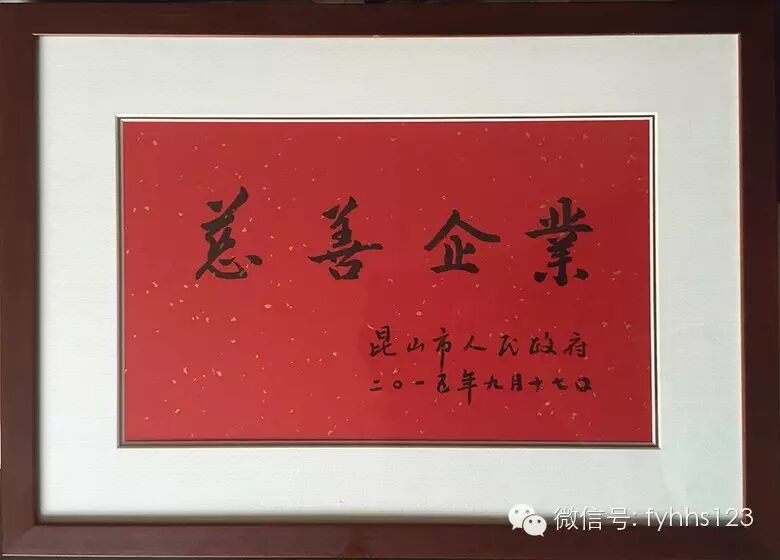 慈善企業
昆山市人民政府
二〇一五年九月十七日
微信号: fyhhs123